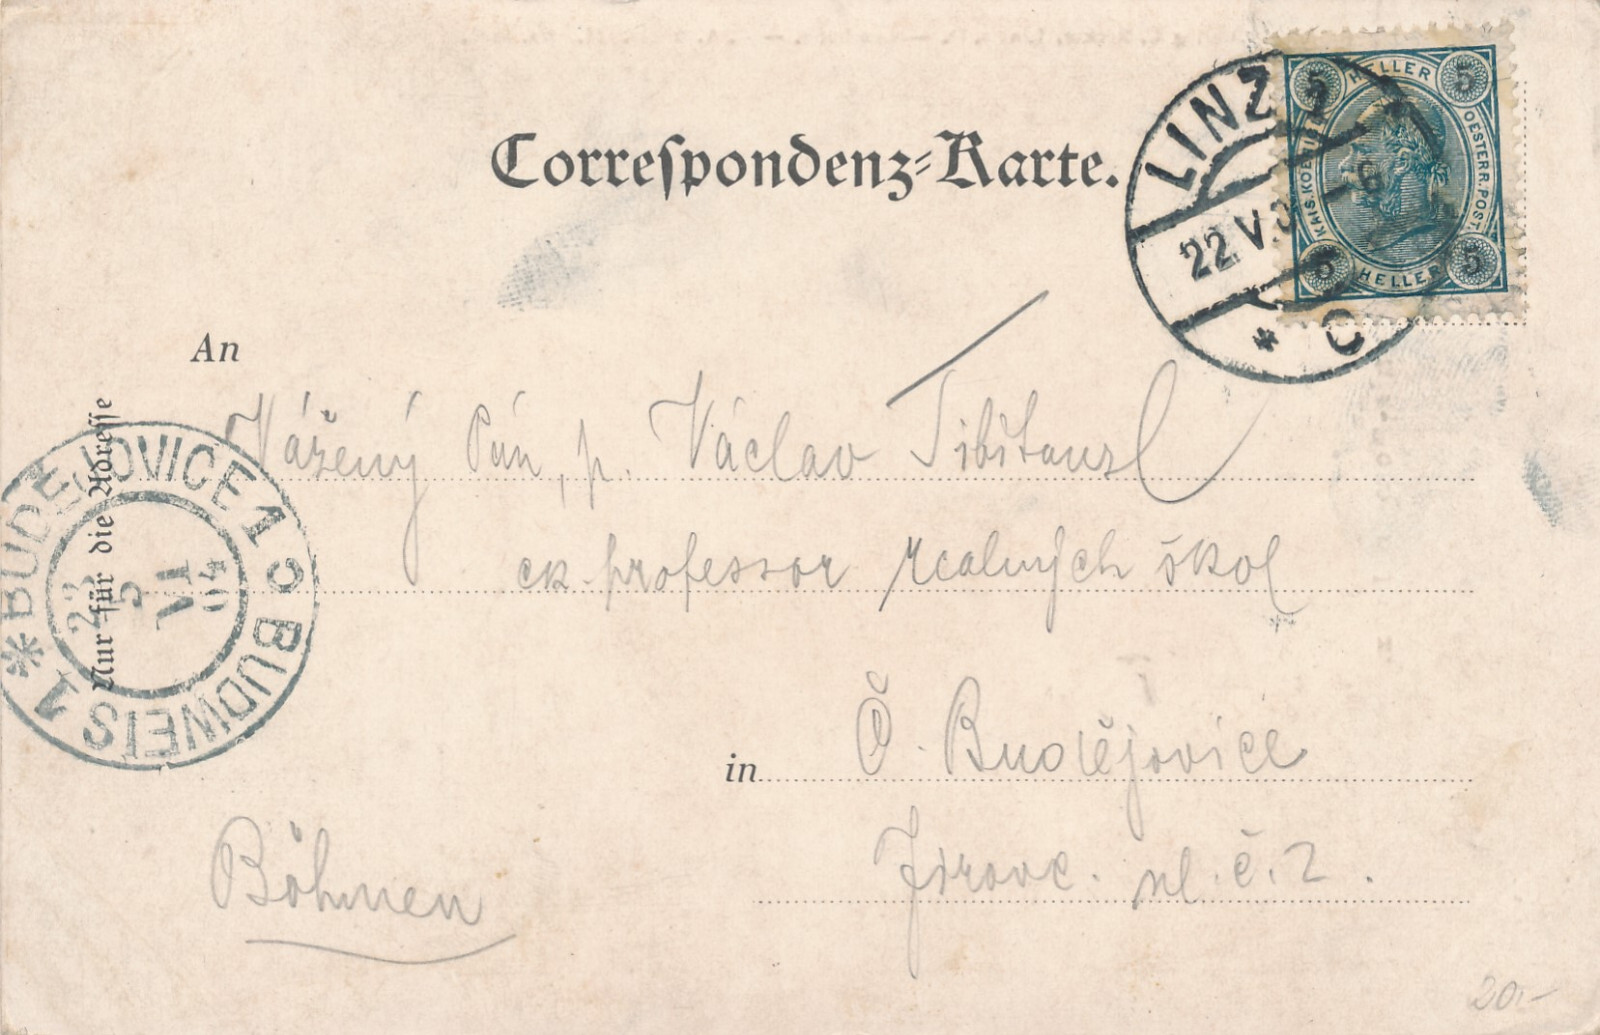 Correspondenz-Karte.
LINZ
22.V.
-6
* C
5 HELLER 5
KAIS. KOENIGL.
OESTERR. POST
5 HELLER 5
An
Nur für die Adresse
Vážený Pán, p. Václav
ck. professor realných škol
in Č. Budějovice
Jirovc. ul. č. 2.
Böhmen
* BUDĚJOVICE 1 * BUDWEIS 1
23 5
VI
04
20,-